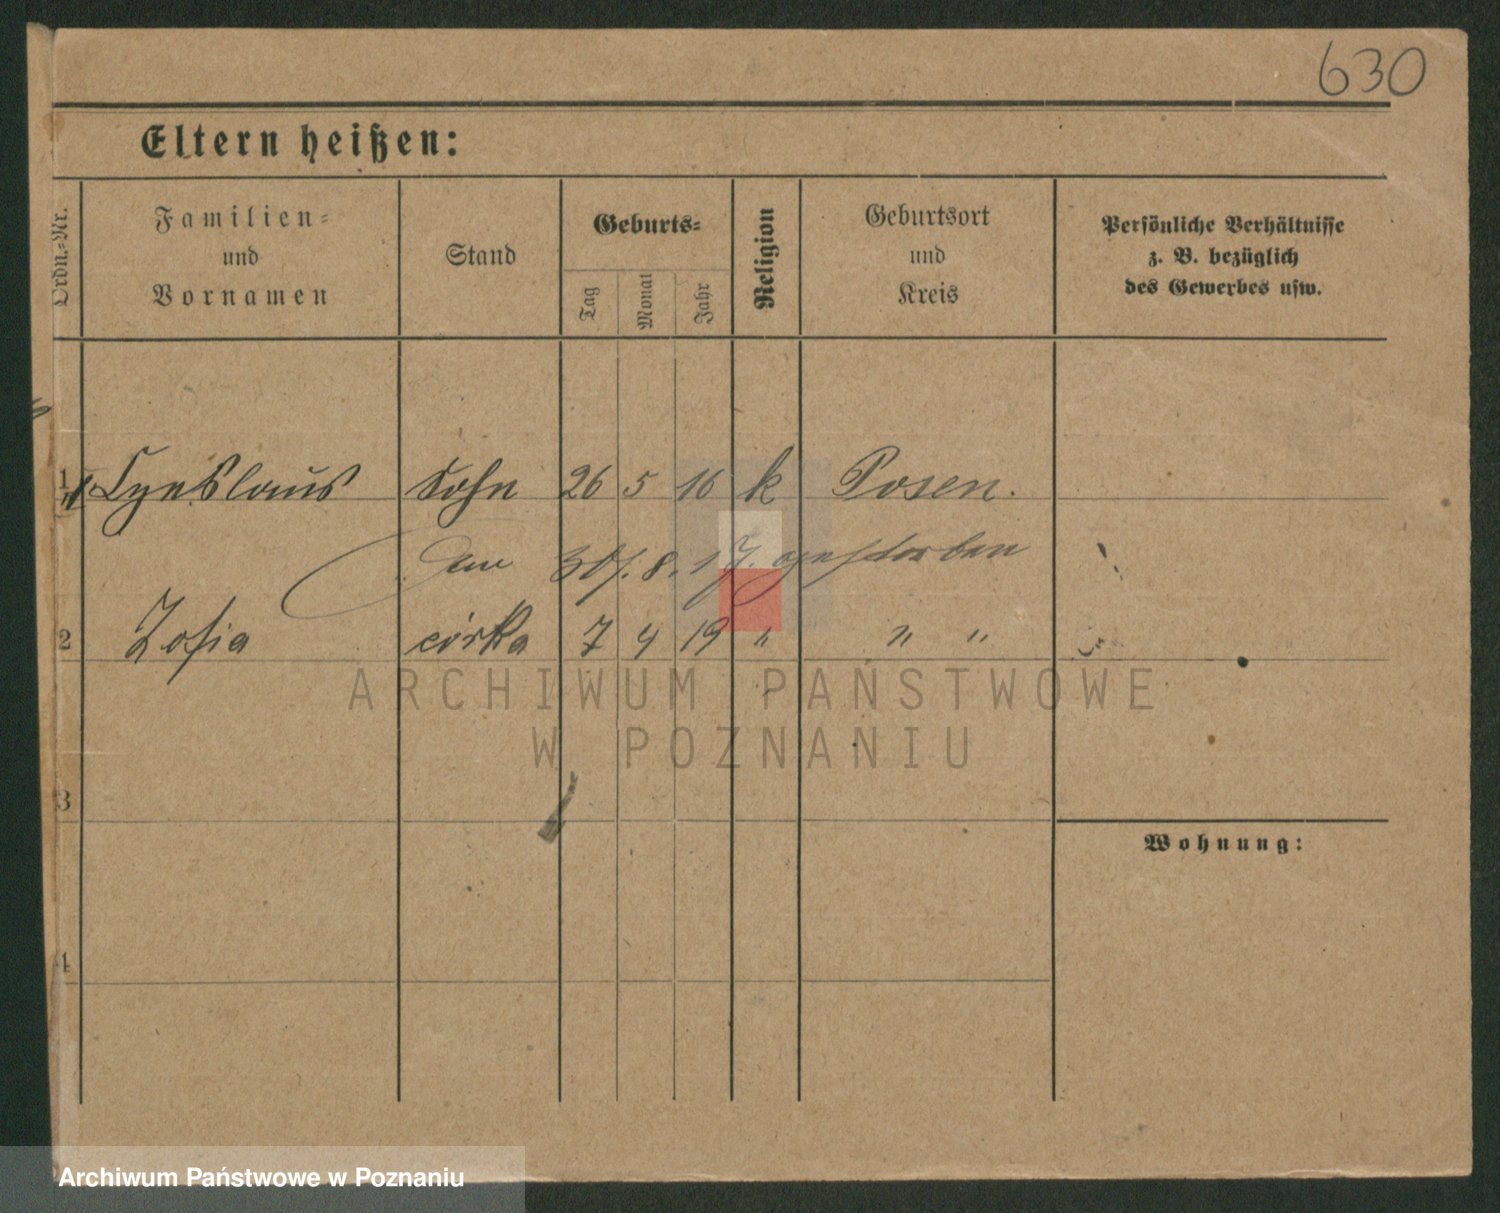 630
Eltern heißen:
Ordn.=Nr.
Familien=
und
Vornamen
Stand
Geburts=
Tag
Monat
Jahr
Religion
Geburtsort
und
Kreis
Persönliche Verhältnisse
z. B. bezüglich
des Gewerbes usw.
1 Czeslaus Sohn 26 5 16 k Posen.
Am 30/. 8. 17. gestorben
2 Zofia córka 7 4 19 " " "
ARCHIWUM PAŃSTWOWE
W POZNANIU
3
Wohnung:
4
Archiwum Państwowe w Poznaniu